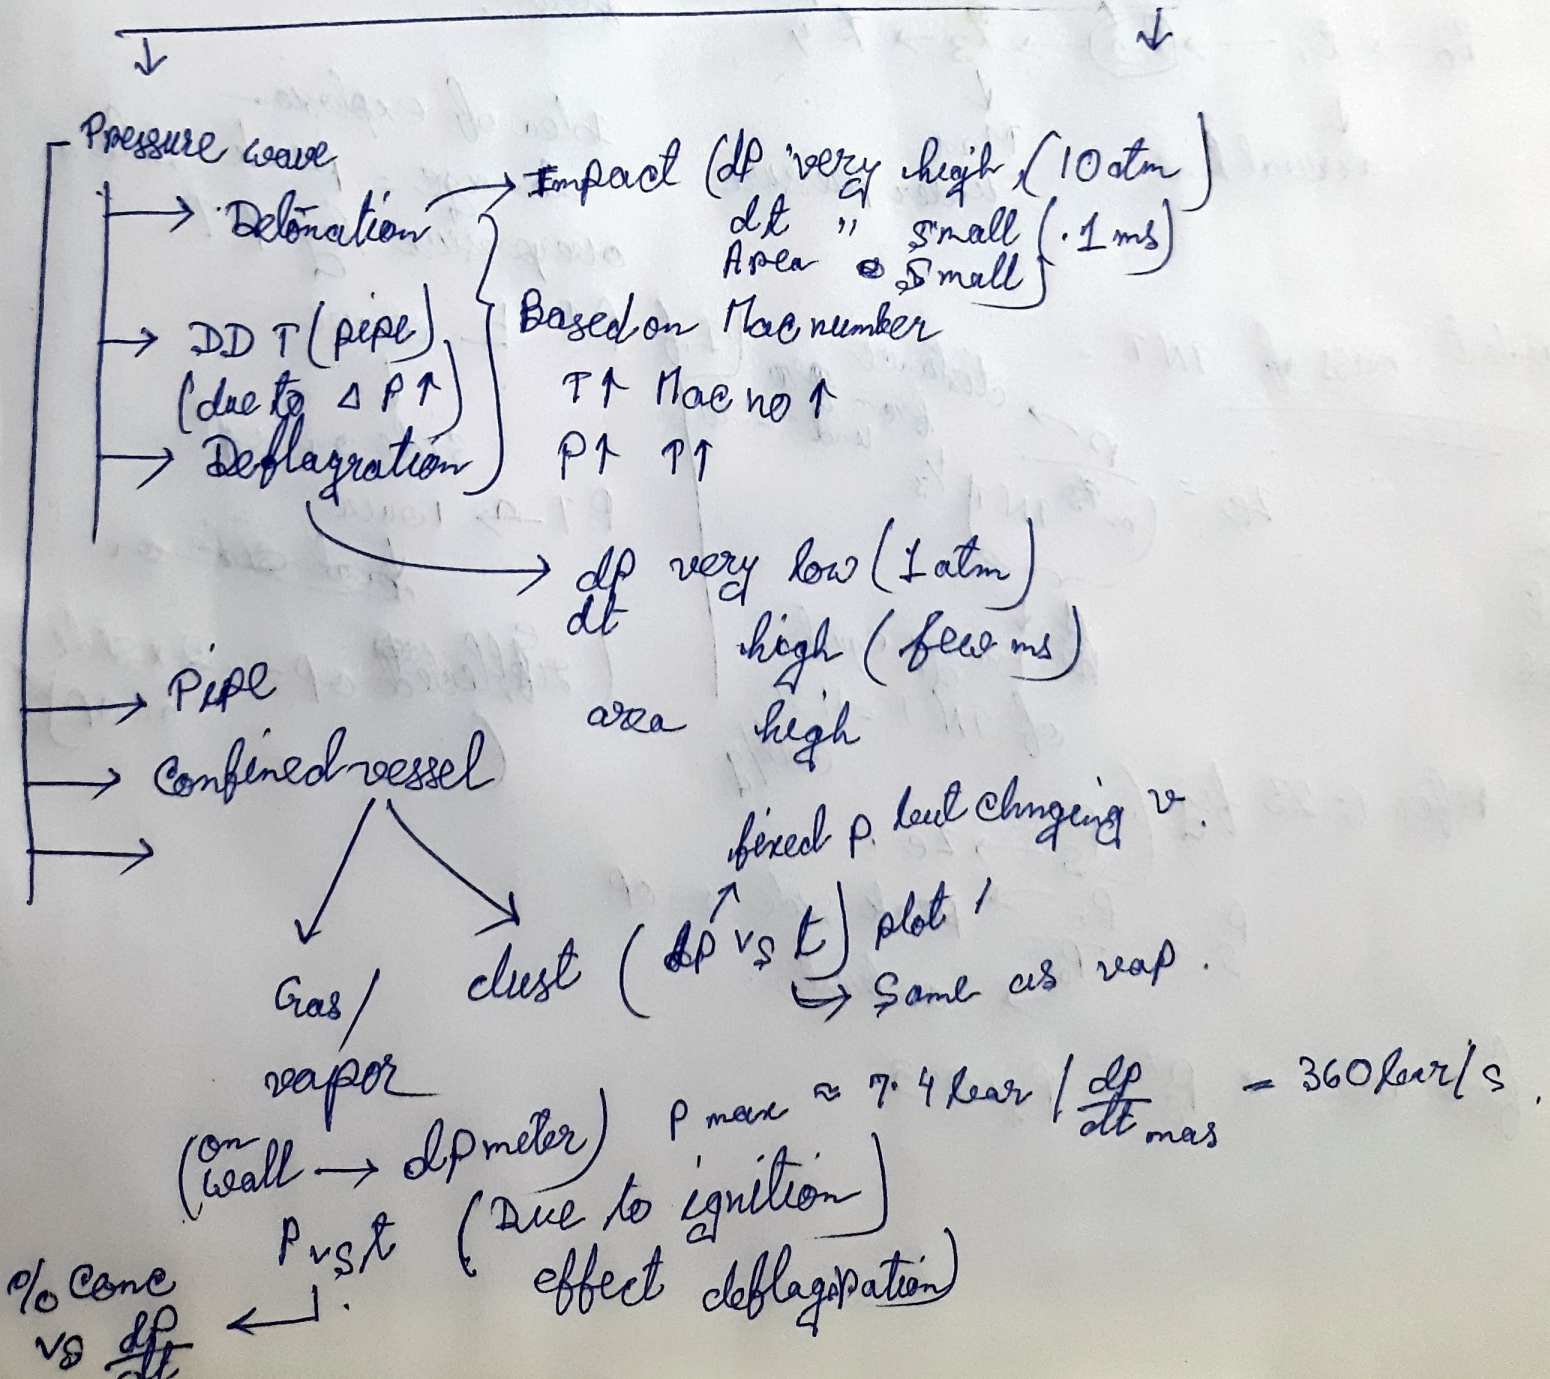 Pressure wave
Detonation → Impact (dP very high (10 atm)
dt " small (.1 ms)
Area small)
DDT (pipe)
(due to Δ P↑)
Deflagration
Based on Mac number
T↑ Mac no ↑
P↑ T↑
dp very low (1 atm)
dt high (few ms)
area high
Pipe
Confined vessel
fixed p. but chnging v.
Gas/
vapor
dust (dp vs t) plot
→ Same as vap.
(on wall → dp meter)
P max ≈ 7.4 bar / dp/dt mas = 360 bar/s.
P vs t (Due to ignition
effect deflagration)
% Conc
vs dP/dt